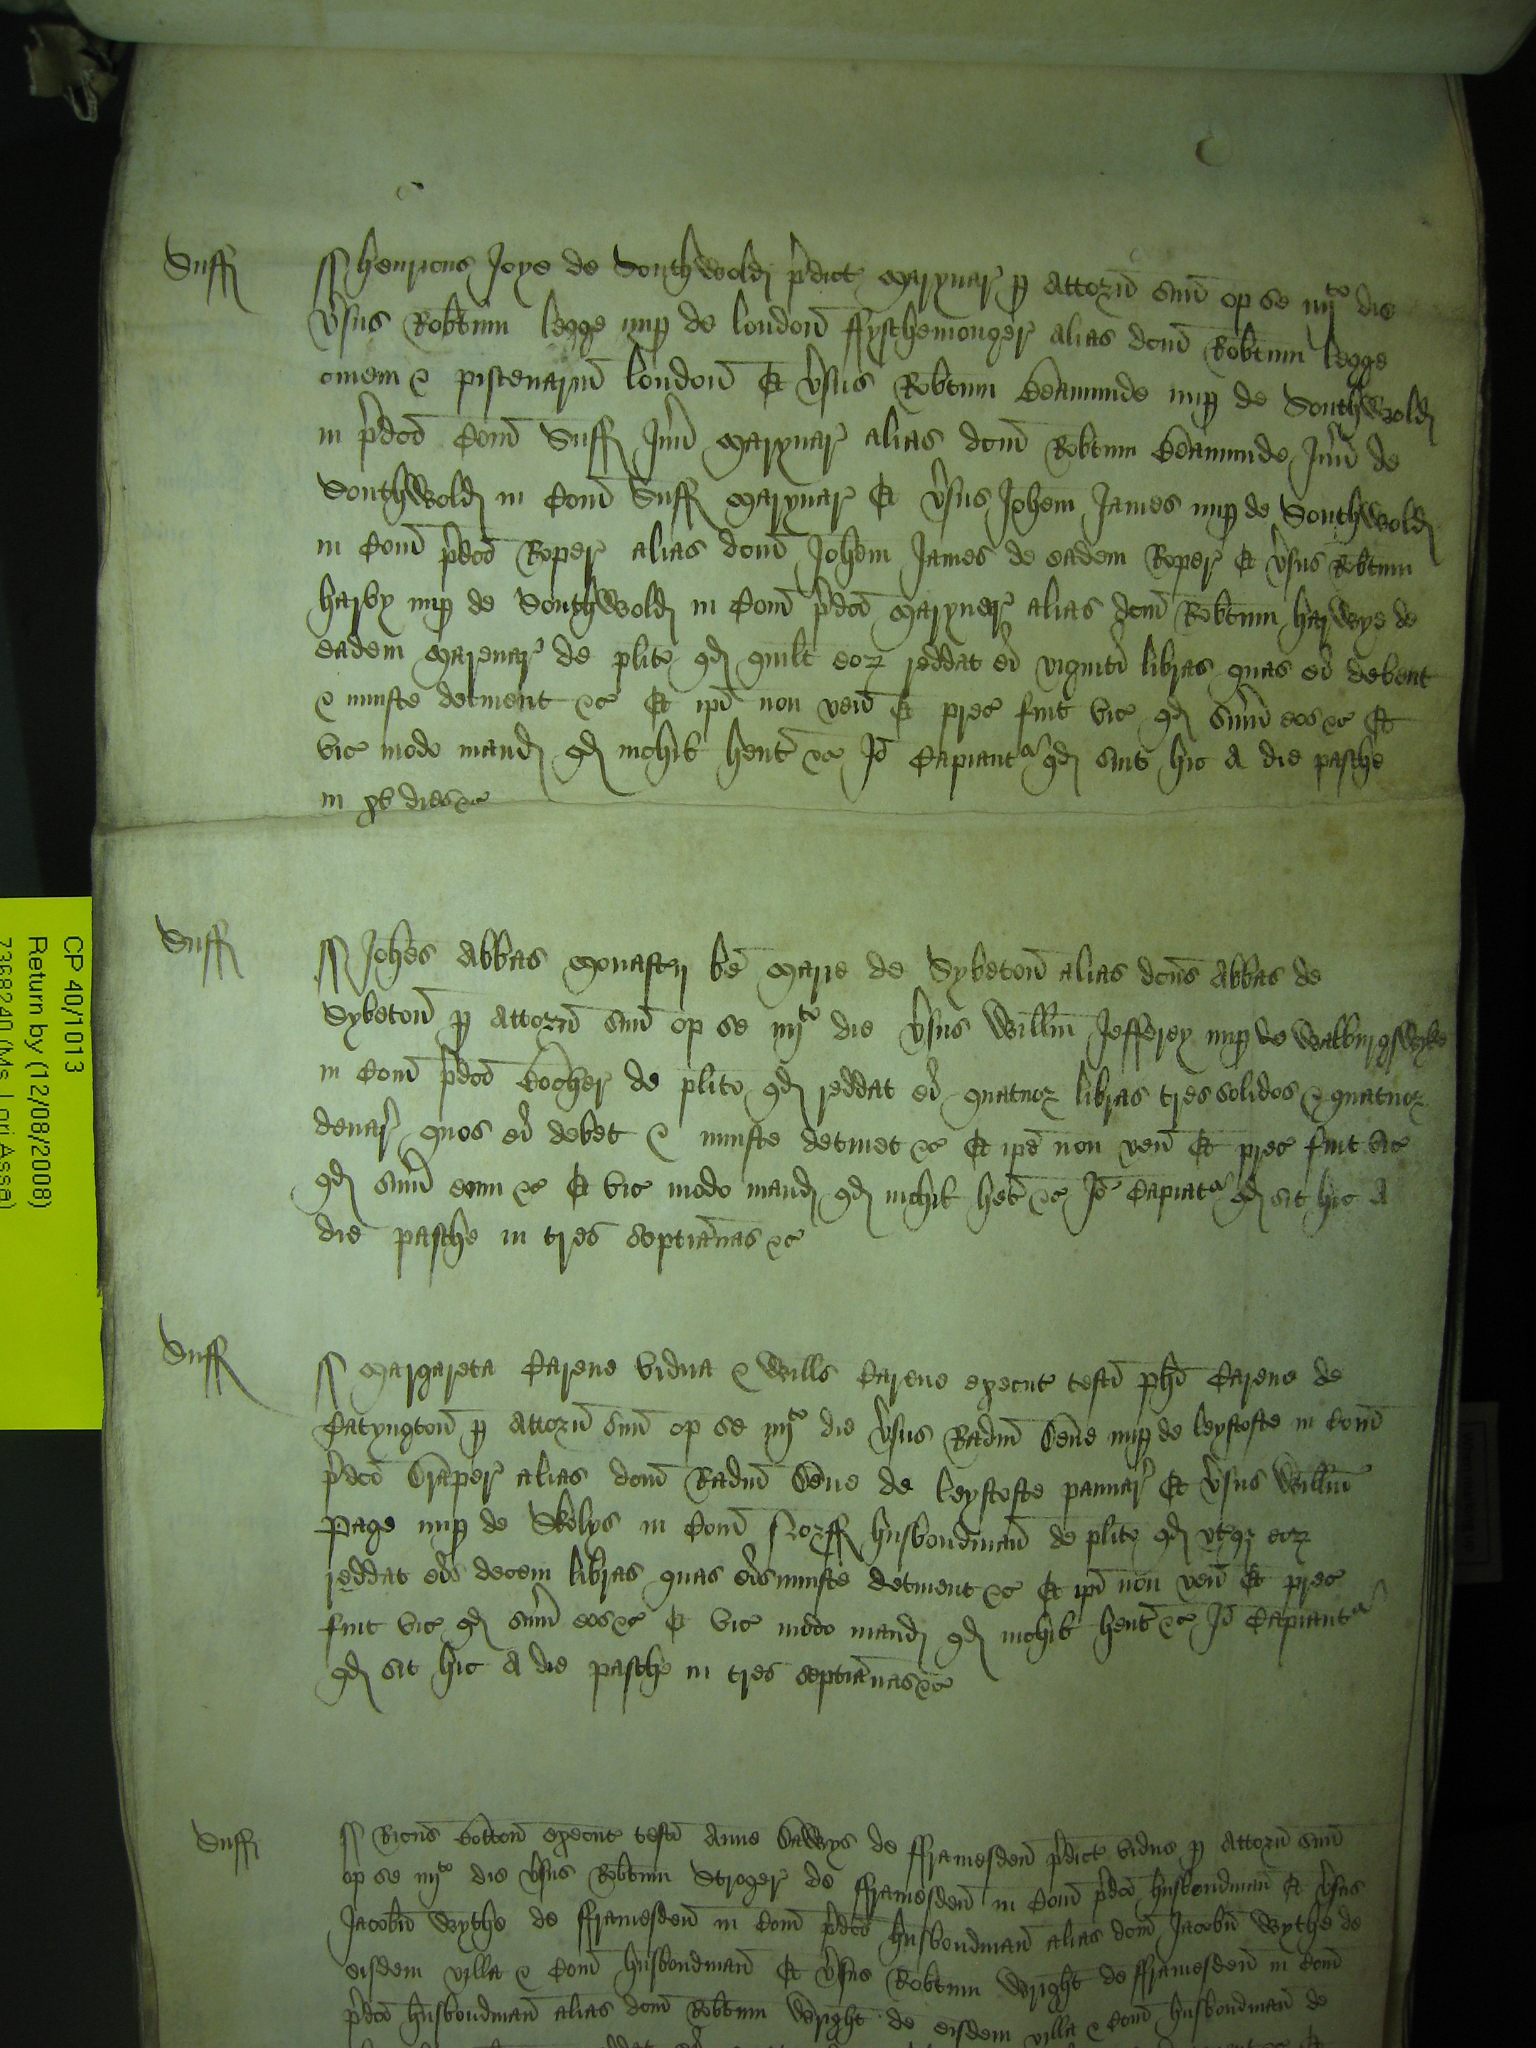 Suff
Henricus Joye de Southwold p'dict Maryner p Attorn suu op se iiijto die
v'sus Robtum legge nup de london ffysshemonger alias dcm Robtum legge
civem & piscenarium london Et v'sus Robtum Beamunde nup de Southwold
in p'dco Com Suff Jun' Marynar alias dcm Robtum Beamunde Jun' de
Southwold in Com Suff Marynar Et v'sus Johem James nup de Southwold
in Com p'dco Roper alias dcm Johem James de eadem Roper Et v'sus Robtum
harvy nup de Southwold in Com p'dco Maryner alias dcm Robtum harvye de
eadem Marenar de plito qd quilt eor reddat ei viginti libras quas ei debent
& iniuste detinent &c Et ipi non ven Et prec fuit vic qd sum eos &c Et
vic modo mand qd nichil hent &c Jo Capiantr qd sint hic A die pasche
in xv dies &c
Suff
Johes Abbas Monastij be Marie de Sybeton alias dcus Abbas de
Sybeton p Attorn suu op se iiijto die v'sus Willm Jefferey nup de Walburgswyke
in Com p'dco Bocher de plito qd reddat ei quatuor libras tres solidos & quatuor
denar quos ei debet & iniuste detinet &c Et ipe non ven Et prec fuit vic
qd sum eum &c Et vic modo mand qd nichil het &c Jo Capiatr qd sit hic A
die pasche in tres septianas &c
Suff
Margareta Carene vidua & Wills Carene execut testi phi Carene de
Catyngton p Attorn suu op se iiijto die v'sus Radm Bene nup de leystofte in Com
p'dco Draper alias dcm Radm Bene de leystofte pannar Et v'sus Willm
Page nup de Skolys in Com Norff husbondman de plito qd utqz eor
reddat eis decem libras quas eis iniuste detinent &c Et ipi non ven Et prec
fuit vic qd sum eos &c Et vic modo mand qd nichil hent &c Jo Capiantr
qd sit hic A die pasche in tres septianas &c
Suff
Ricus Cotton execut testi Anne Dawys de fframesden p'dict vidue p Attorn suu
op se iiijto die v'sus Robtum Stroger de fframesden in Com p'dco husbondman Et v'sus
Jacobu Wythe de fframesden in Com p'dco husbondman alias dcm Jacobu Wythe de
eisdem villa & Com husbondman Et v'sus Robtum Wright de fframesden in Com
p'dco husbondman alias dcm Robtum Wright de eisdem villa & Com husbondman de
CP 40/1013
Return by (12/08/2008)
7368240 (Ms Lori Asse)